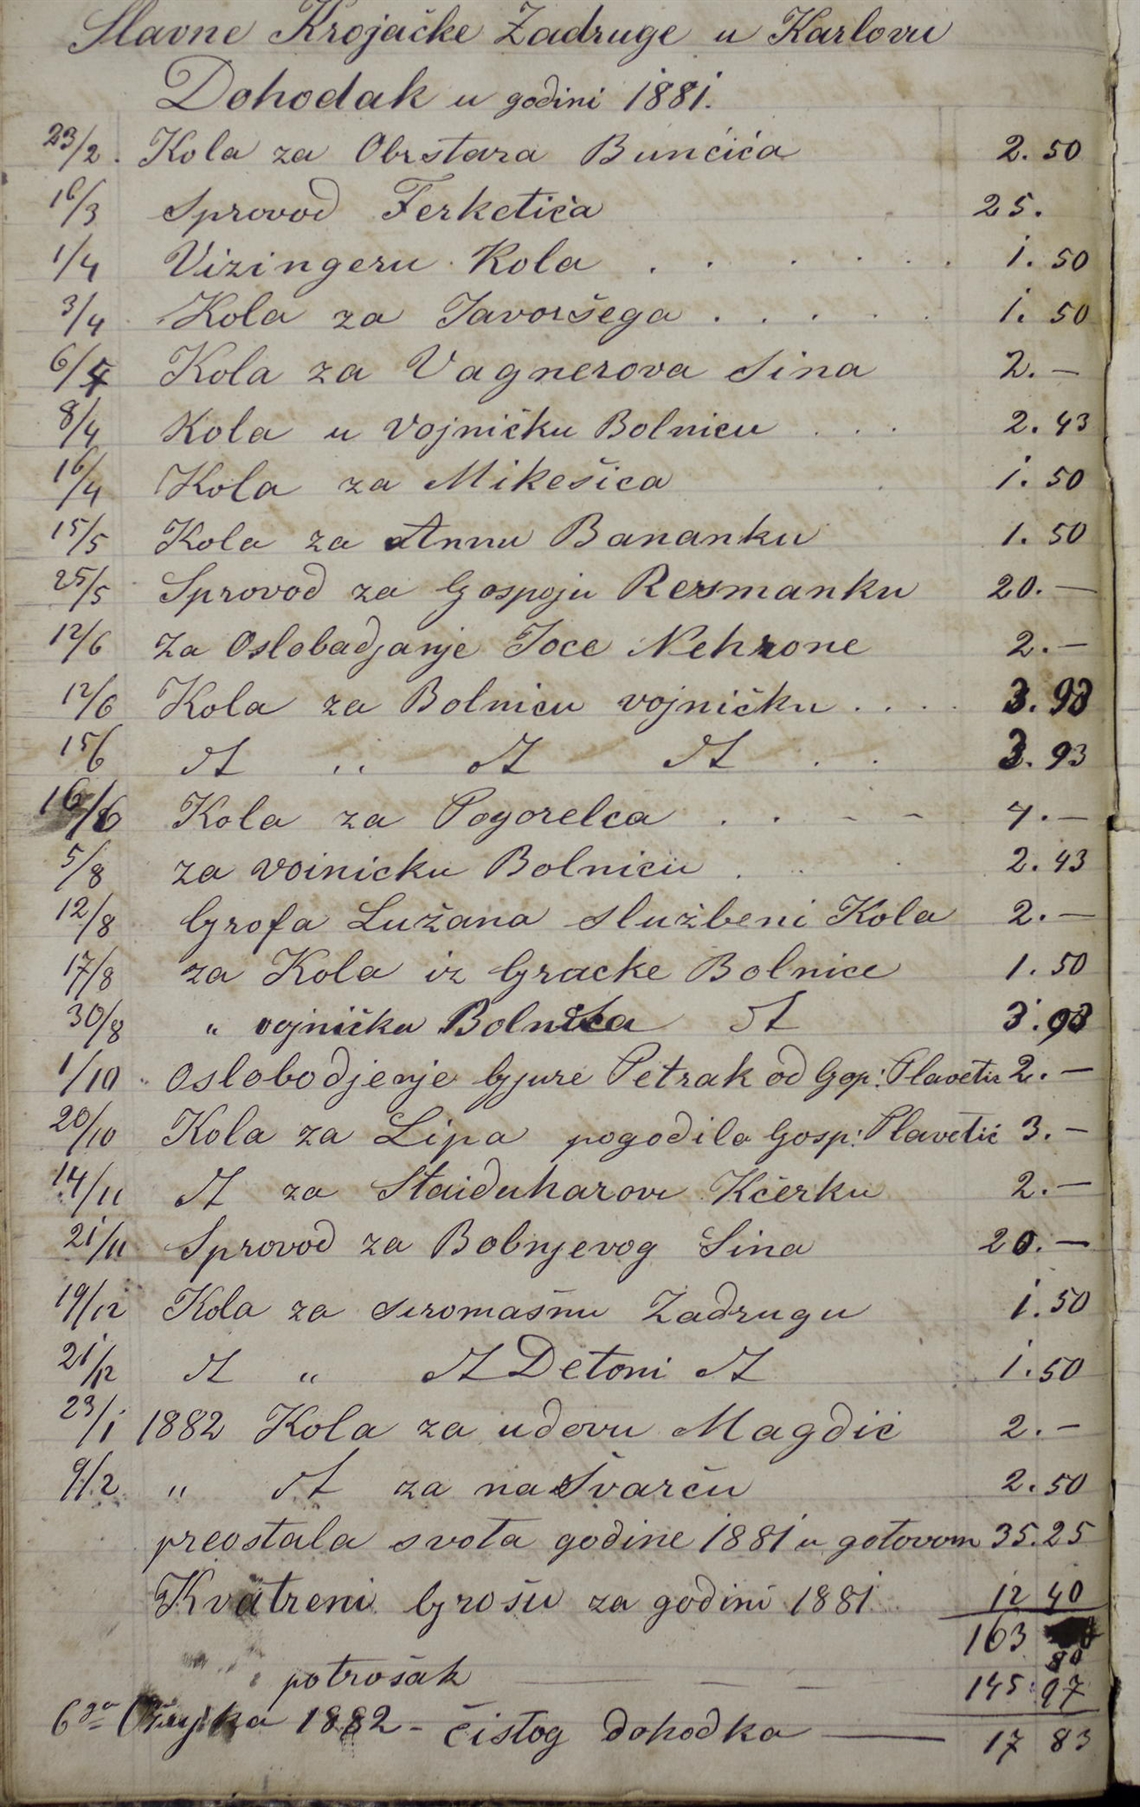 Slavne Krojačke Zadruge u Karlovu
Dohodak u godini 1881.
23/2. Kola za Obrstara Bunčića 2.50
16/3 Sprovod Ferketića 25.
1/4 Vizingeru Kola . . . . . . 1.50
3/4 Kola za Javoršega . . . . . 1.50
6/4 Kola za Vagnerova Sina 2.—
8/4 Kola u Vojničku Bolnicu . . . 2.43
16/4 Kola za Mikešica 1.50
15/5 Kola za Annu Bananku 1.50
25/5 Sprovod za Gospoju Resmanku 20.—
12/6 Za Oslobadjanje Joce Nehrone 2.—
12/6 Kola za Bolnicu vojničku . . . . 3.93
15/6 " . . 3.93
16/6 Kola za Pogorelca . . - - 4.—
5/8 za voinicku Bolnicu . 2.43
12/8 Grofa Lužana službeni Kola 2.—
17/8 za Kola iz Gracke Bolnice 1.50
30/8 " vojnička Bolnica 3.93
1/10 Oslobodjenje Gjure Petrak od Gop: Plavetić 2.—
20/10 Kola za Lipa pogodila Gosp: Plavetić 3.—
14/11 za Staiduharovu Kčerku 2.—
21/11 Sprovod za Bobnjevog Sina 20.—
19/12 Kola za siromašnu Zadrugu 1.50
21/12 " Detoni 1.50
23/1 1882 Kola za udovu Magdić 2.—
9/2 " za na Švarču 2.50
preostala svota godine 1881 u gotovom 35.25
Kvatreni Grošu za godini 1881 12 40
163 80
potrošak — — — 145.97
6ga 1882 - čistog dohodka — 17 83